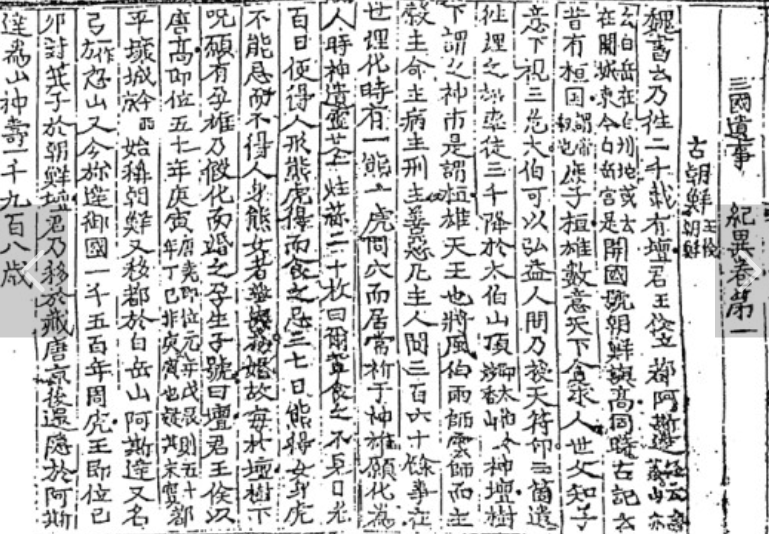 三國遺事 紀異卷第一
古朝鮮 王儉朝鮮
魏書云乃往二千載有壇君王儉立都阿斯達 經云無葉山亦
云白岳在白州地或云在開城東今白岳宮是 開國號朝鮮與高同時古記云
昔有桓囯 謂帝釋也 庶子桓雄數意天下貪求人世父知子
意下視三危太伯可以弘益人間乃授天符印三箇遣
徃理之雄率徒三千降於太伯山頂 即太伯今妙香山 神壇樹
下謂之神市是謂桓雄天王也將風伯雨師雲師而主
穀主命主病主刑主善惡凡主人間三百六十餘事在
世理化時有一熊一虎同穴而居常祈于神雄願化為
人時神遺靈艾一炷蒜二十枚曰爾輩食之不見日光
百日便得人形熊虎得而食之忌三七日熊得女身虎
不能忌而不得人身熊女者無與為婚故每於壇樹下
呪願有孕雄乃假化而婚之孕生子號曰壇君王儉以
唐高即位五十年庚寅 唐堯即位元年戊辰則五十年丁巳非庚寅也疑其未實 都
平壤城 今西京 始稱朝鮮又移都於白岳山阿斯達又名
弓 一作方 忽山又今旀達御國一千五百年周虎王即位己
卯封箕子於朝鮮壇君乃移於藏唐京後還隱於阿斯
達為山神壽一千九百八歲